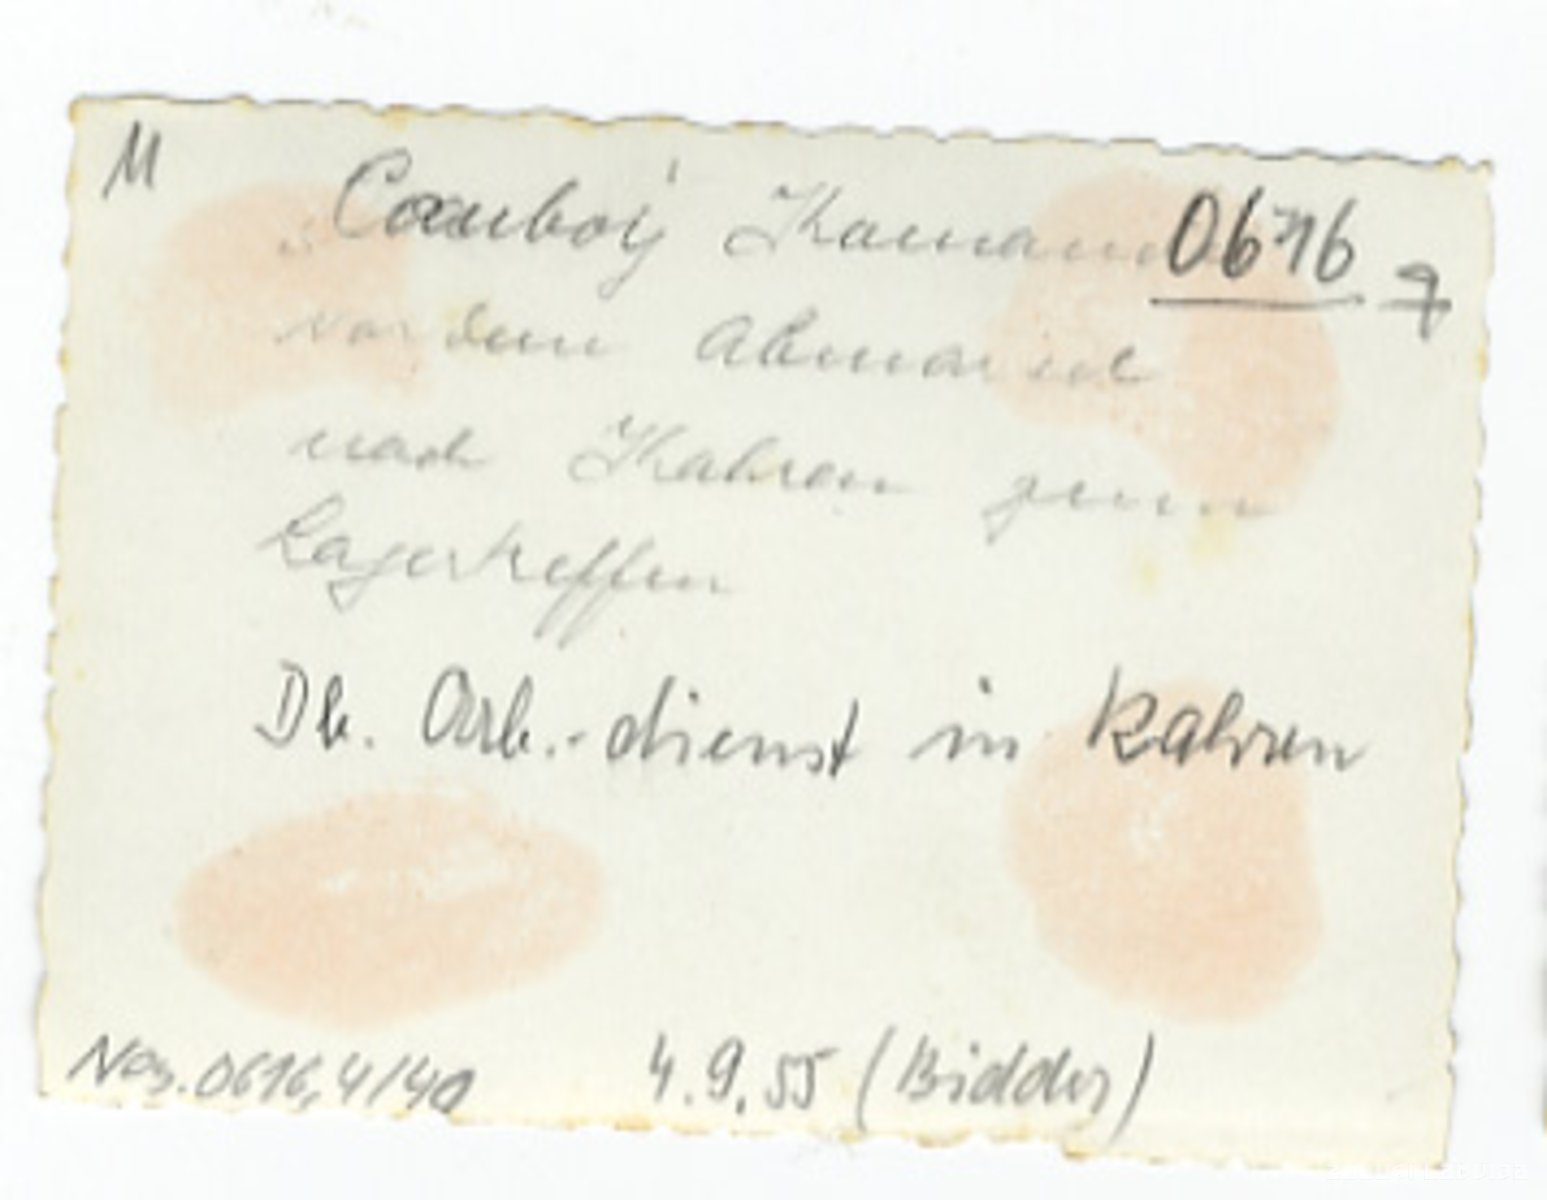 M
"Cowboy" Kamann 0616 7
vor dem Abmarsch
nach Kahren zum
Lagertreffen
Db. Arb.-dienst in Kahren
Neg. 0616, 4/40 4.9.55 (Bidder)